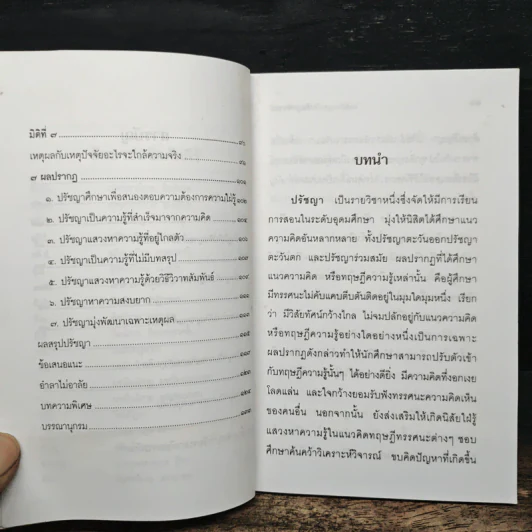 มิติที่ ๗
เหตุผลกับเหตุปัจจัยอะไรจะใกล้ความจริง
๗ ผลปรากฏ
๑. ปรัชญาศึกษาเพื่อสนองตอบความต้องการความใฝ่รู้
๒. ปรัชญาเป็นความรู้ที่สำเร็จมาจากความคิด
๓. ปรัชญาแสวงหาความรู้ที่อยู่ไกลตัว
๔. ปรัชญาเป็นความรู้ที่ไม่มีบทสรุป
๕. ปรัชญาแสวงหาความรู้ด้วยวิธีวิวาทสัมพันธ์
๖. ปรัชญาหาความสงบยาก
๗. ปรัชญามุ่งพัฒนาเฉพาะเหตุผล
ผลสรุปปรัชญา
ข้อเสนอแนะ
อำลาไม่อาลัย
บทความพิเศษ
บรรณานุกรม
บทนำ
ปรัชญา เป็นรายวิชาหนึ่งซึ่งจัดให้มีการเรียน
การสอนในระดับอุดมศึกษา มุ่งให้นิสิตได้ศึกษาแนว
ความคิดอันหลากหลาย ทั้งปรัชญาตะวันออกปรัชญา
ตะวันตก และปรัชญาร่วมสมัย ผลปรากฏที่ได้ศึกษา
แนวความคิด หรือทฤษฎีความรู้เหล่านั้น คือผู้ศึกษา
มีทรรศนะไม่คับแคบตีบตันติดอยู่ในมุมใดมุมหนึ่ง เรียก
ว่า มีวิสัยทัศน์กว้างไกล ไม่จมปลักอยู่กับแนวความคิด
หรือทฤษฎีความรู้อย่างใดอย่างหนึ่งเป็นการเฉพาะ
ผลปรากฏดังกล่าวทำให้นักศึกษาสามารถปรับตัวเข้า
กับทฤษฎีความรู้นั้นๆ ได้อย่างดียิ่ง มีความคิดที่งอกเงย
โลดแล่น และใจกว้างยอมรับฟังทรรศนะความคิดเห็น
ของคนอื่น นอกจากนั้น ยังส่งเสริมให้เกิดนิสัยใฝ่รู้
แสวงหาความรู้ในแนวคิดทฤษฎีทรรศนะต่างๆ ชอบ
ศึกษาค้นคว้าวิเคราะห์วิจารณ์ ขบคิดปัญหาที่เกิดขึ้น